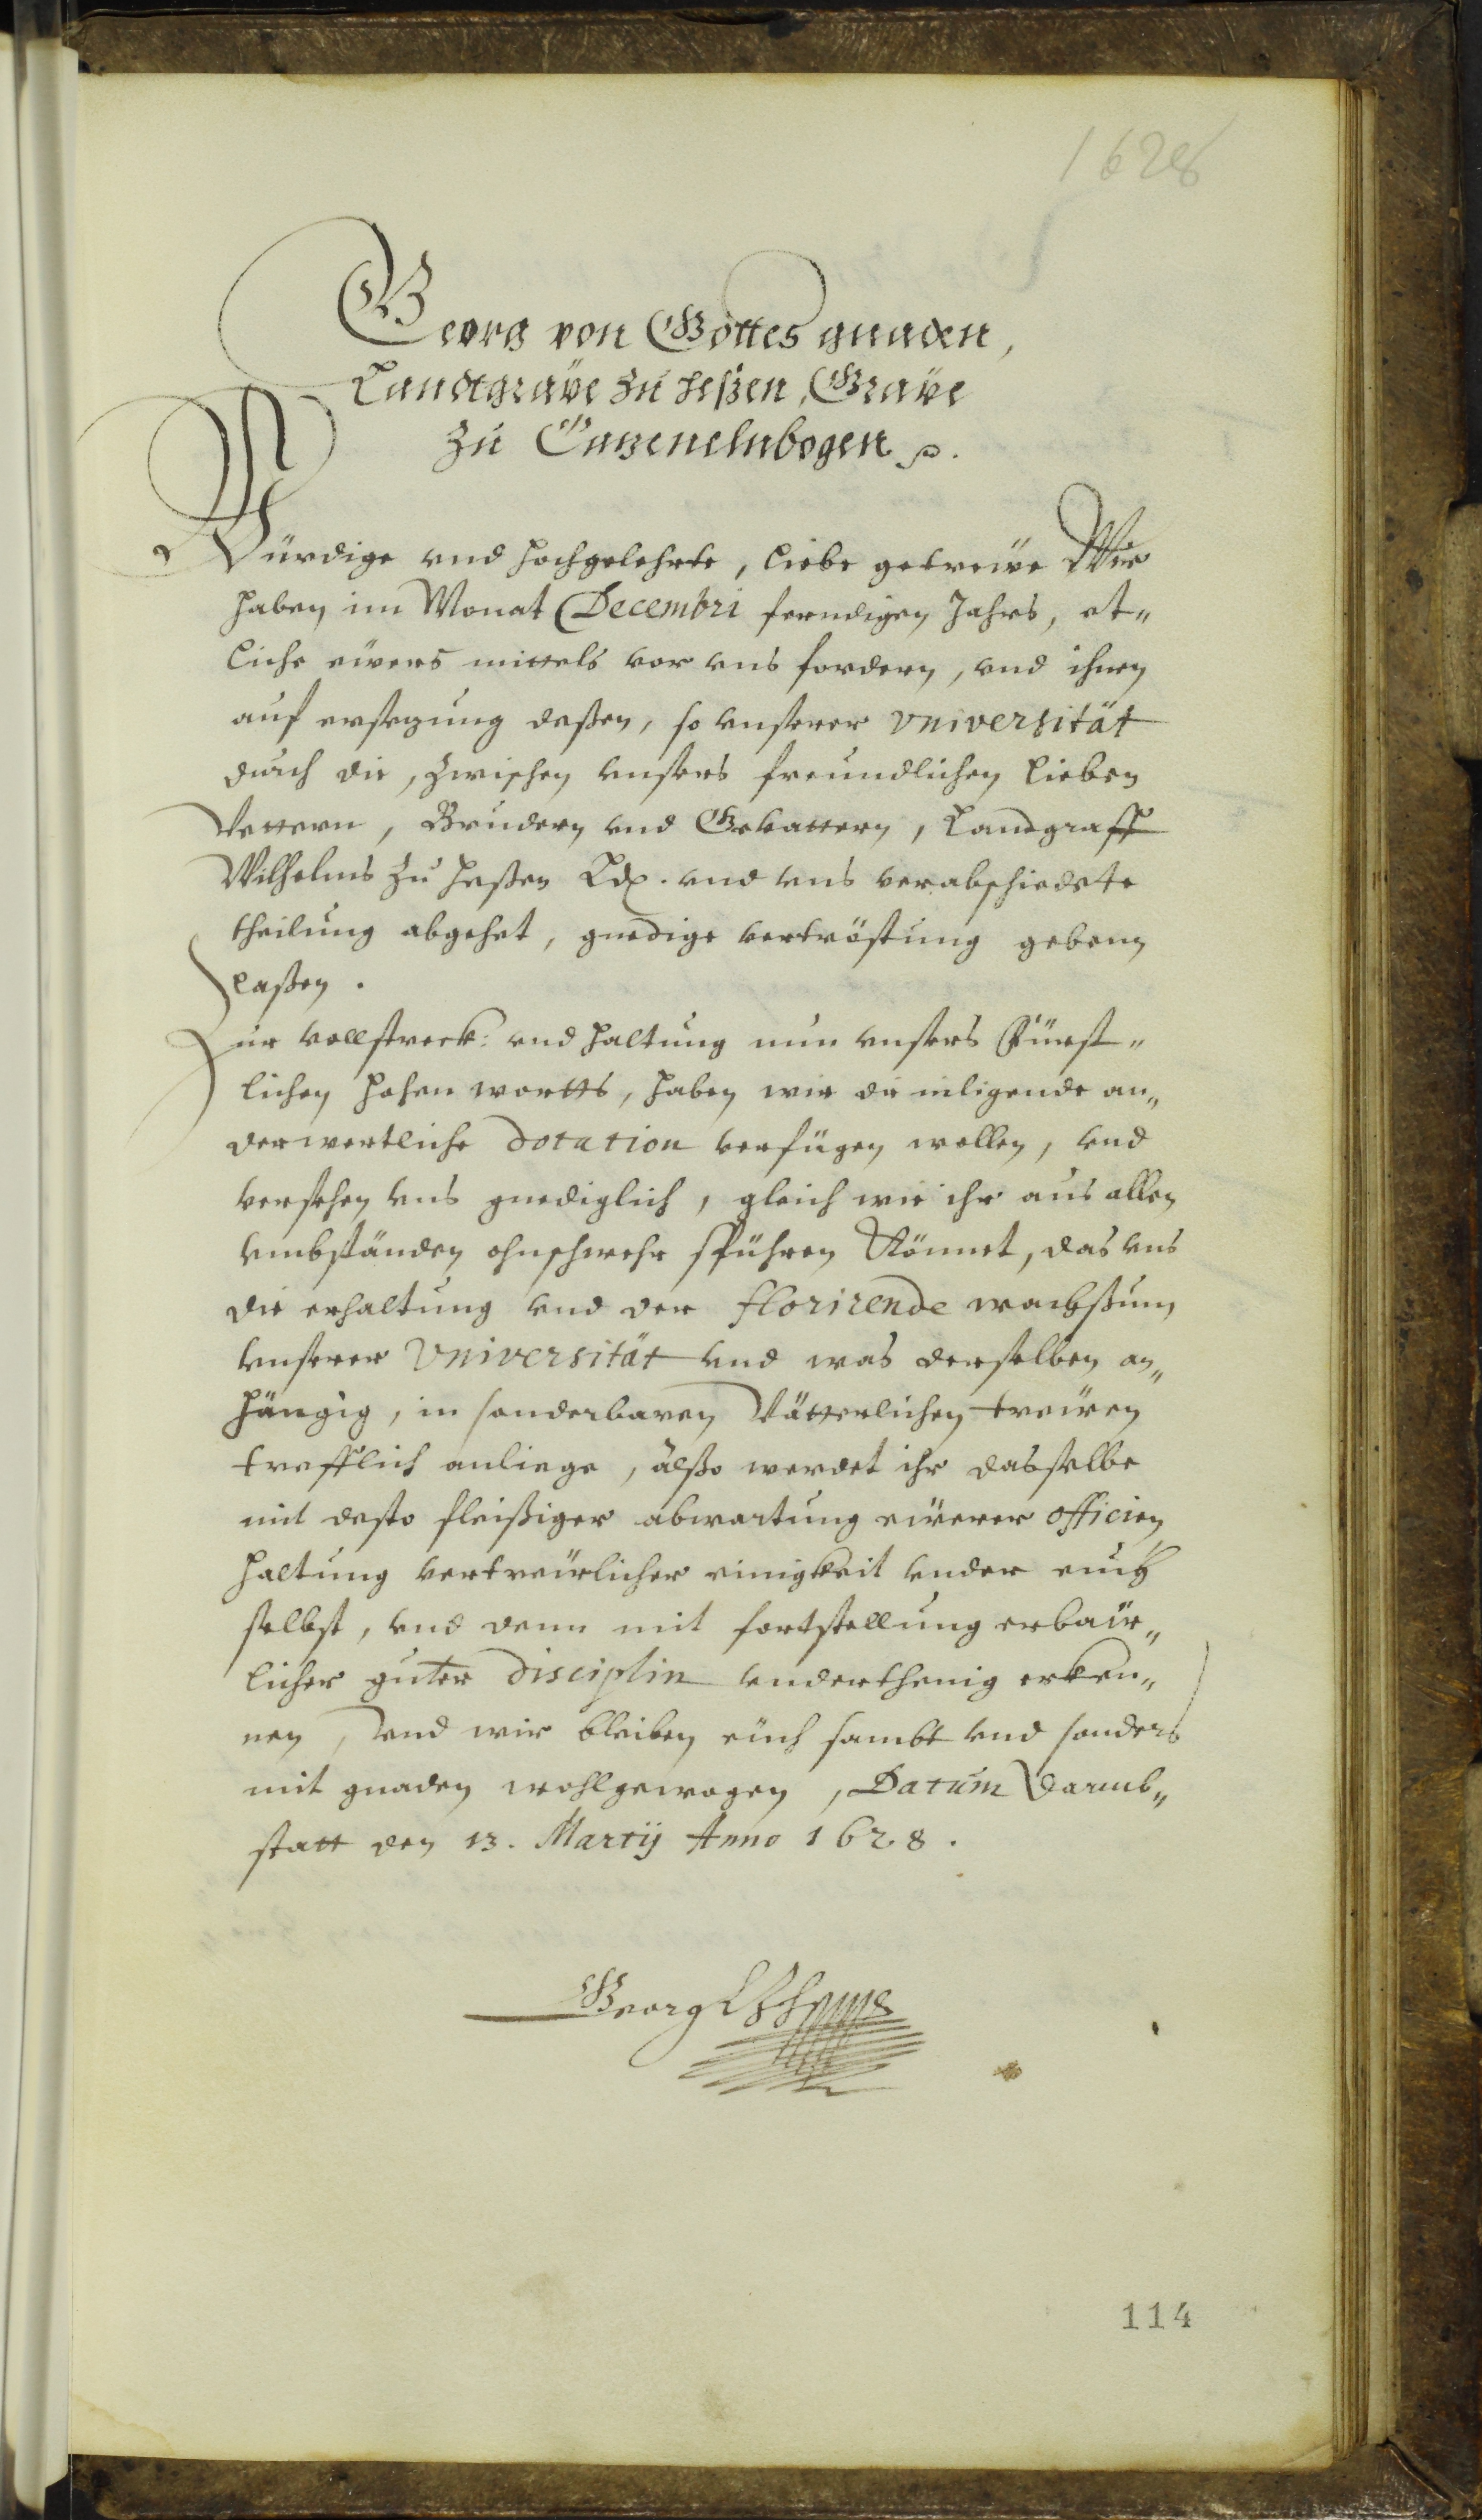 1628
Georg von Gottes gnaden,
Landtgrave zu Heßen, Grave
zu Catzenelnbogen p.
Würdige vnd hochgelehrte, liebe getrewe Wir
haben im Monat Decembri ferndigen Jahrs, et„
liche ewers mittels vor vns fordern, vnd ihnen
auf ersetzung deßen, so vnserer Vniversität
durch die, zwischen vnsers freundlichen lieben
Vettern, Brudern vnd Gevattern, Landgraff
Wilhelms zu Heßen Ld. vnd vns verabschiedete
theilung abgehet, gnedige vertröstung geben
laßen.
Zur vollstreck: vnd haltung nun vnsers Fürst„
lichen hohen wortts, haben wir die inligende an„
derwertliche dotation verfügen wollen, vnd
versehen vns gnediglich, gleich wie ihr aus allen
vmbständen ohnschwehr spühren könnet, das vns
die erhaltung vnd der florirende wachßtum
vnserer Vniversität vnd was derselben an„
hängig, in sonderbaren Vätterlichen trewen
trefflich anliege, alßo werdet ihr dasselbe
mit desto fleißiger abwartung ewerer officien
haltung vertrewlicher einigkeit vnder euch
selbst, vnd dann mit fortstellung erbaw„
licher guter disciplin vnderthenig erken„
nen, vnd wir bleiben euch sambt vnd sonders
mit gnaden wohlgewogen, Datum Darmb„
statt den 13. Martij Anno 1628.
Georg L z Hessen
114